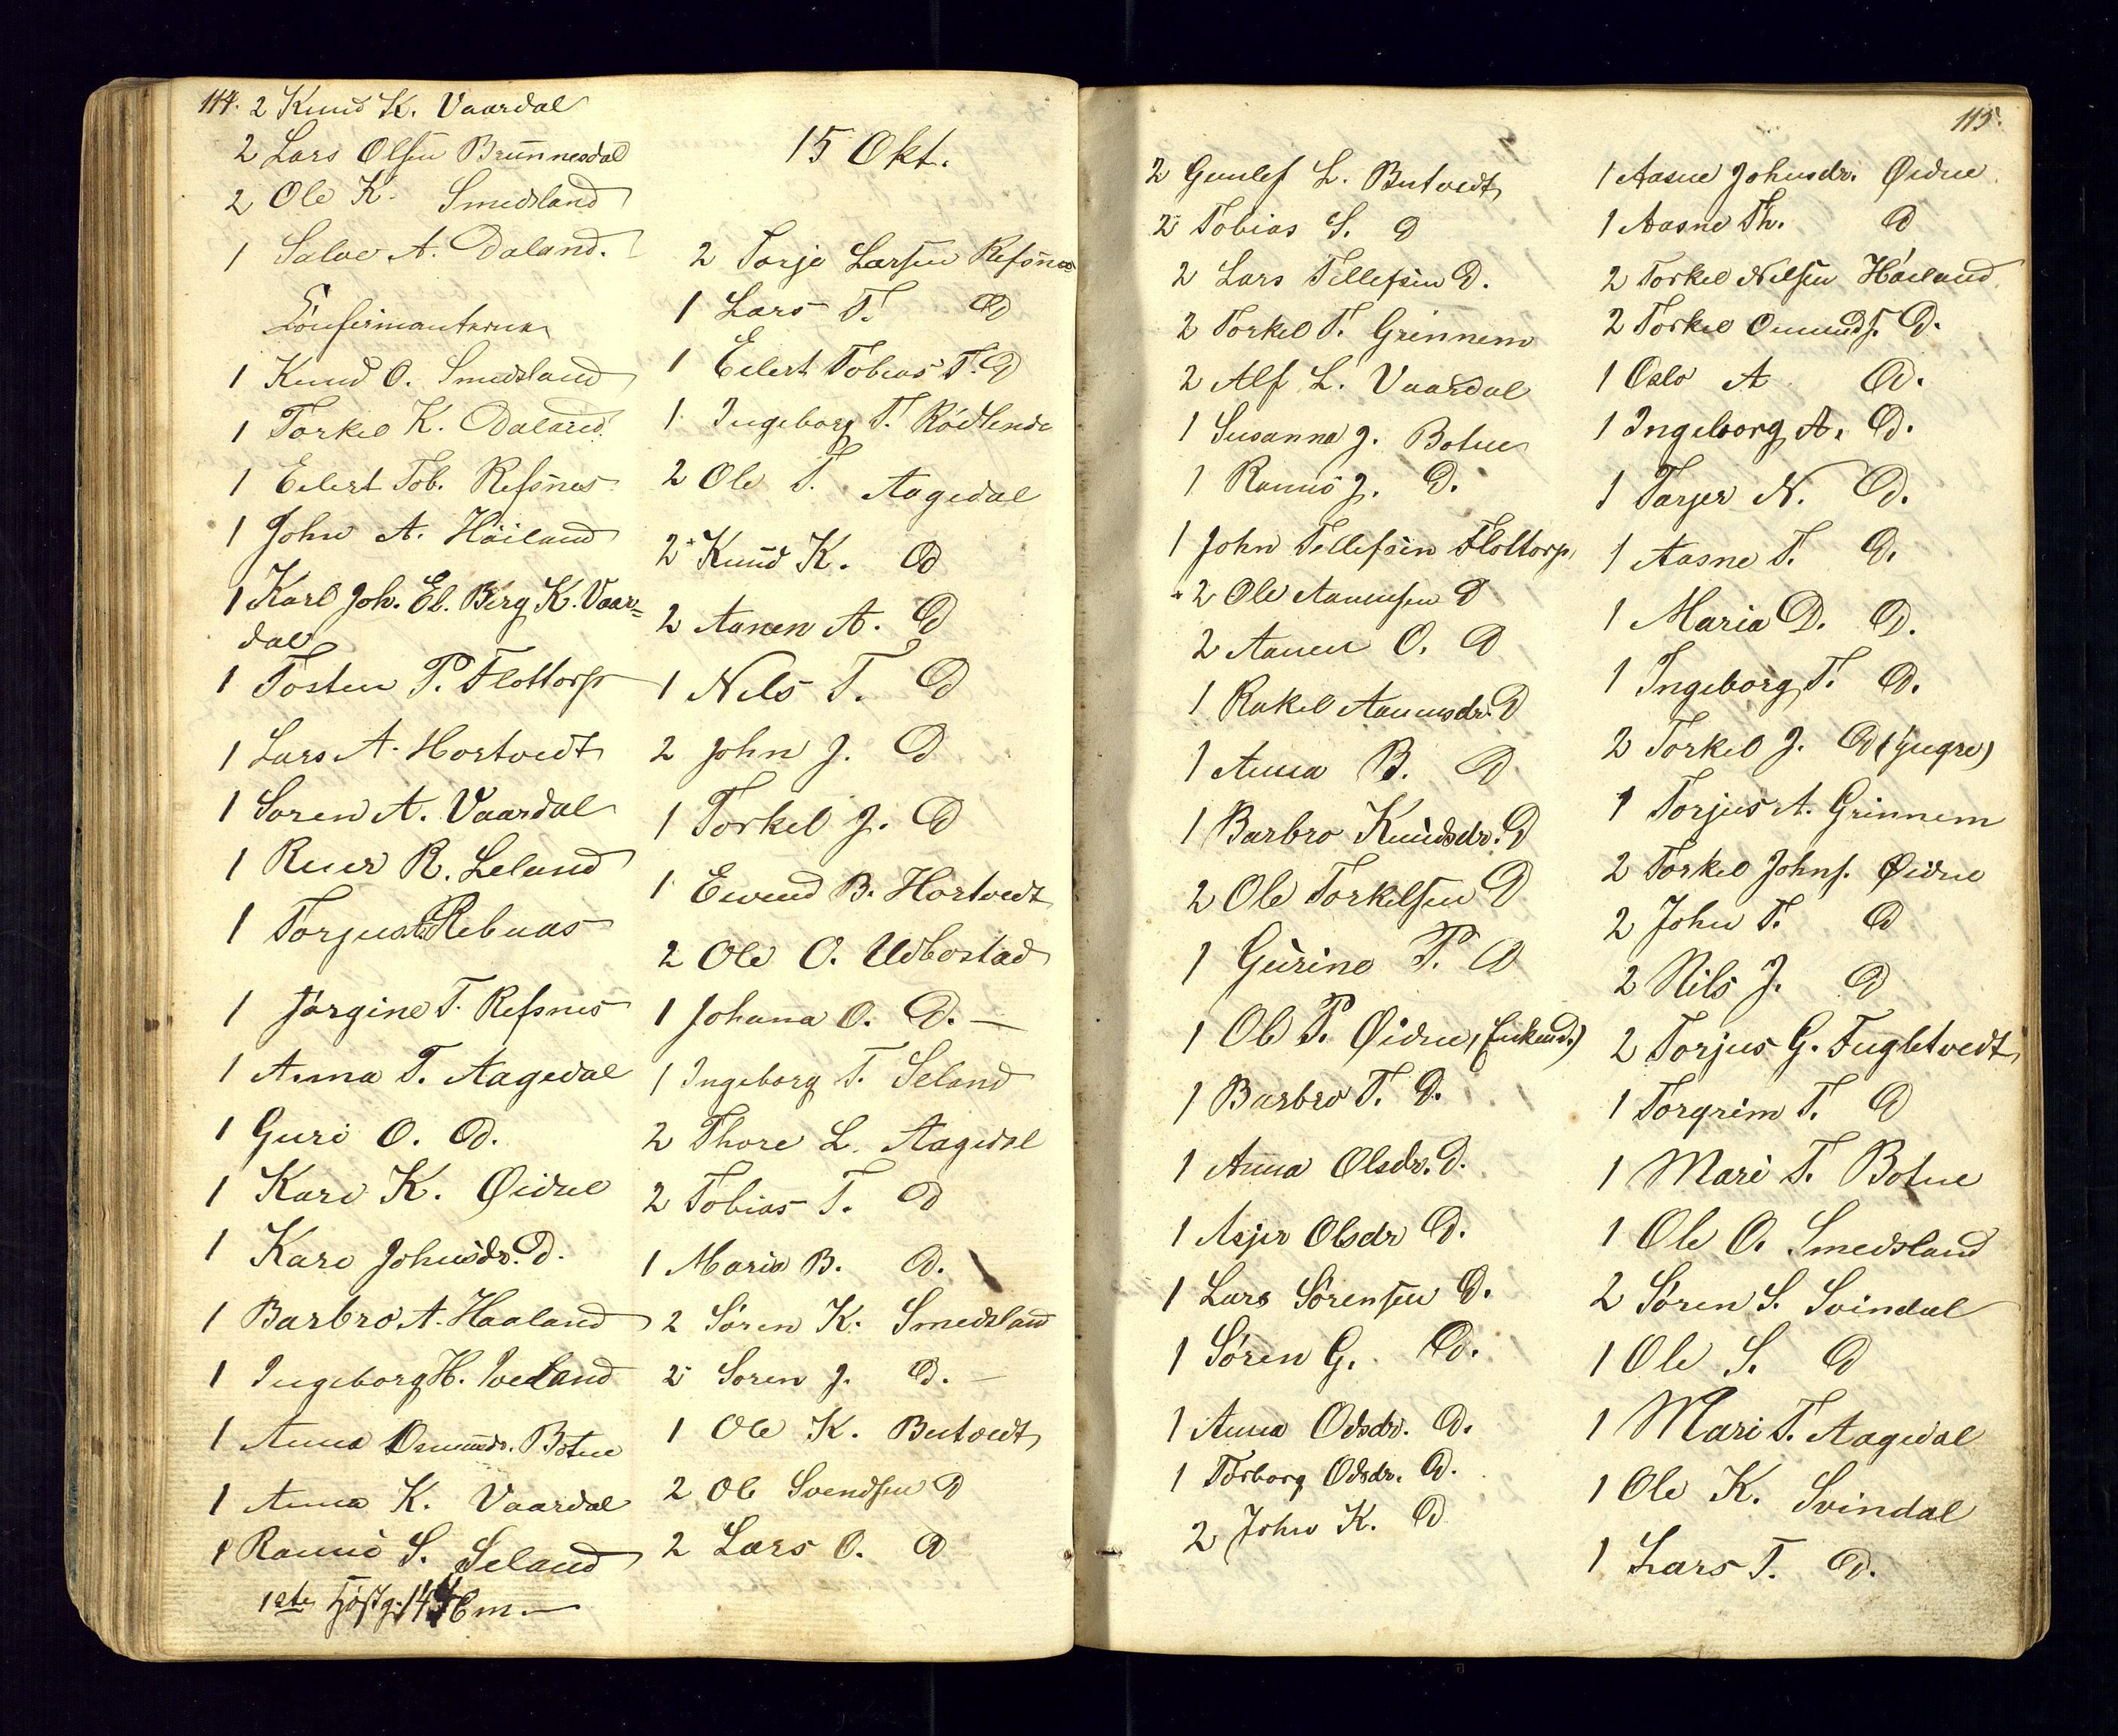 114. 2 Knud K. Vaardal
2 Lars Olsen Brunnesdal
2 Ole K. Smedsland
1 Salve A. Daland.
Confirmanterne
1 Knud O. Smedsland
1 Torkel K. Daland
1 Eilert Tob. Refsnes
1 John A. Höiland
1 Karl Joh. El. Berg K. Vaar=
dal
1 Tosten P. Flottorp
1 Lars A. Hortvedt
1 Soren A. Vaardal
1 Reier R. Leland
1 Torjus Rebnas
1 Jörgine T. Refsnes
1 Anna T. Aagedal
1 Guri O. D.
1 Kari K. Øidne
1 Kari Johnsdr. D.
1 Barbro A. Haaland
1 Ingeborg H. Veland
1 Anna Osmunds. Botne
1 Anna K. Vaardal
1 Rannei S. Seland
1ste Höstg. m.
15 Okt.
2 Torje Larsen Refsnes
1 Lars T. D
1 Eilert Tobias T. D
1 Ingeborg T. Rödlende
2 Ole T. Aagedal
2 Knud K. D
2 Aanen A. D
1 Nels T. D
2 John J. D
1 Torkel J. D
1 Eivend B. Hortvedt
2 Ole O. Udbostad
1 Johana O. D. —
1 Ingeborg T. Seland
2 Thore L. Aagedal
2 Tobias T. D
1 Maria B. D.
2 Sören K. Smedsland
2 Soren J. D. —
1 Ole K. Butvedt
2 Ole Svendsen D
2 Lars O. D
115.
2 Gunlef L. Butvedt
2 Tobias S. D
2 Lars Tellefsen D.
2 Torkel T. Grinnem
2 Alf L. Vaardal
1 Susanna J. Botne
1 Rannei J. D.
1 John Tellefsen Flottorp
2 Ole Aanensen D
2 Aanen O. D
1 Rakel Aanensdr. D
1 Anna B. D
1 Barbro Knudsdr. D
2 Ole Torkelsen D
1 Gurine P. D
1 Ole P. Øidne, (Enkemd.)
1 Barbro T. D.
1 Anna Olsdr. D.
1 Asjer Olsdr D.
1 Lars Sörensen D.
1 Sören G. D.
1 Anna Odsdr. D.
1 Torborg Odsdr. D.
2 John K. D
1 Aasne Johnsdr. Øidne
1 Aasne Th. D
2 Torkel Nelsen Håeland
2 Torkel Omunds. D.
1 Oslo A D.
1 Ingeborg A. D.
1 Tarjer N. D.
1 Aasne T. D.
1 Maria D. D.
1 Ingeborg T. D.
2 Torkel J. D (yngre)
1 Torjus A. Grinnem
2 Torkel Johns. Øidne
2 John T. D
2 Nils J. D
2 Torjus G. Fugletvedt
1 Torgrim T. D
1 Mari T. Botne
1 Ole O. Smedsland
2 Søren S. Svindal
1 Ole S. D
1 Mari T. Aagedal
1 Ole K. Svindal
1 Lars T. D.